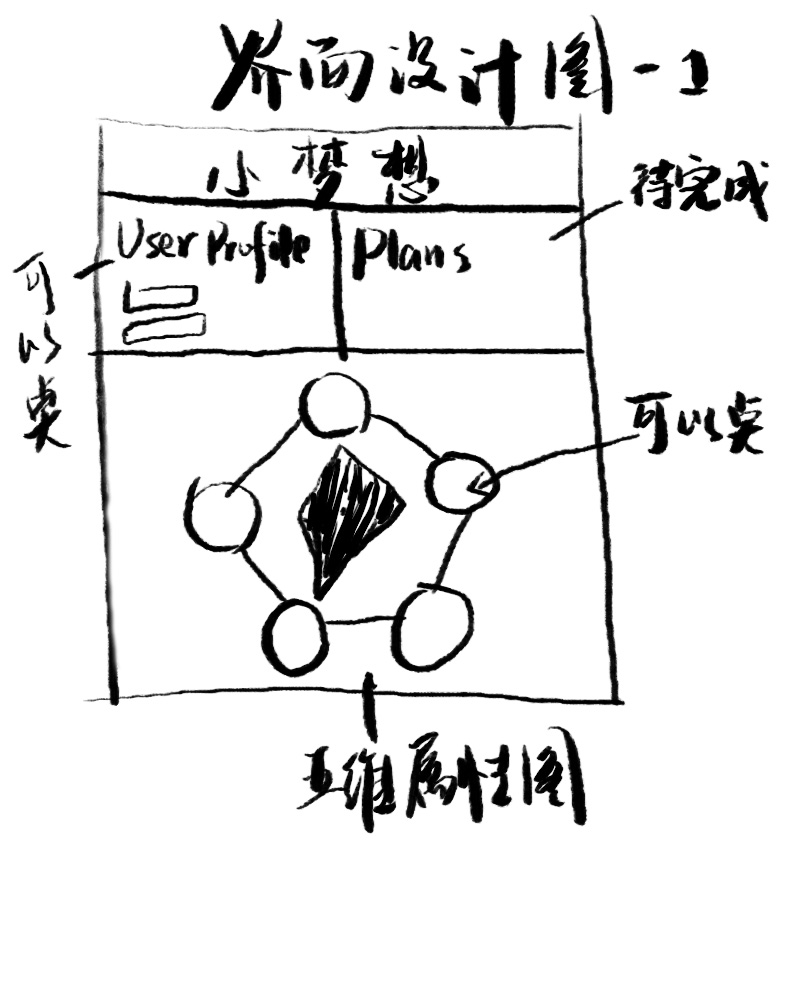 界面设计图-1
小梦想
待完成
User Profile
Plans
可以点
可以点
五维属性图